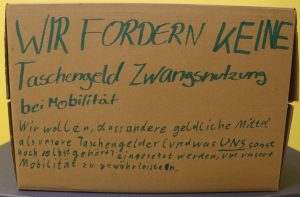 WIR FORDERN KEINE
Taschengeld Zwangsnutzung
bei Mobilität
Wir wollen, dass andere geldliche Mittel
als unsere Taschengelder (und was UNS sonst
noch selbst gehört) eingesetzt werden, um unsere
Mobilität zu gewährleisten.